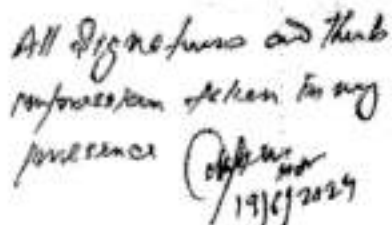 All Signatures and thumb
impression taken in my
presence
19/6/2024